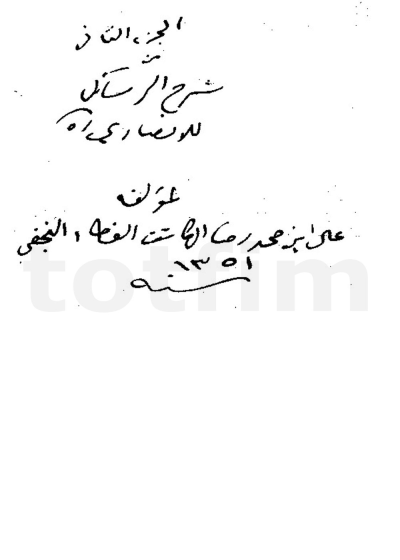 الجزء الثاني
من
شرح الرسائل
للانصاري ره
لمؤلفه
علي ابن محمد رضا ال كاشف الغطاء النجفي
سنه ١٣٥١
totfim